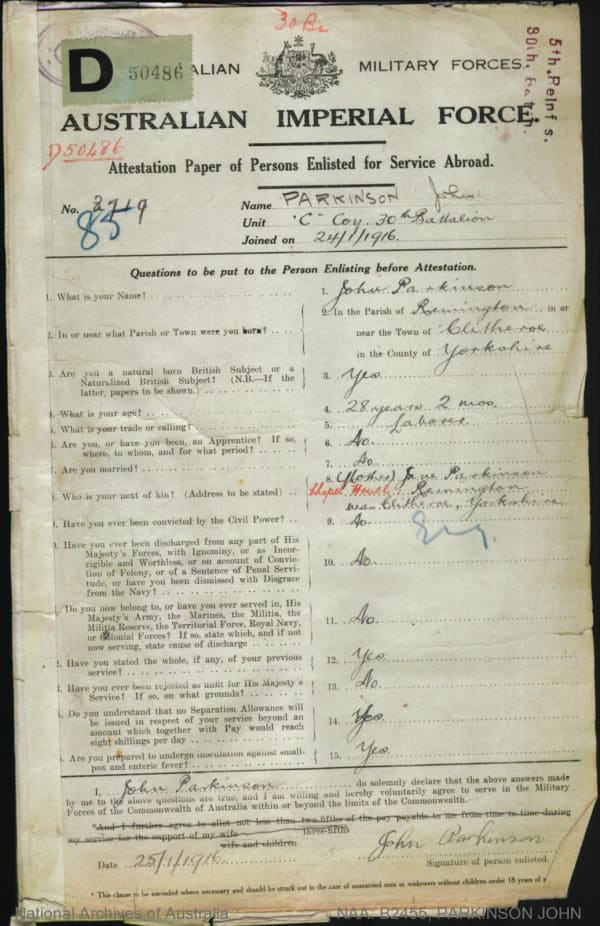 30 Bn
D 50486
ALIAN MILITARY FORCES.
5th. Reinf s.
30th. Battn.
AUSTRALIAN IMPERIAL FORCE.
D50486
Attestation Paper of Persons Enlisted for Service Abroad.
No. 2719
85
Name PARKINSON John
Unit "C" Coy. 30th Battalion
Joined on 24/1/1916.
Questions to be put to the Person Enlisting before Attestation.
1. What is your Name? 1. John Parkinson
2. In or near what Parish or Town were you born? 2. In the Parish of Rimington in or
near the Town of Clitheroe
in the County of Yorkshire
3. Are you a natural born British Subject or a
Naturalized British Subject? (N.B.—If the
latter, papers to be shown.) 3. Yes
4. What is your age? 4. 28 years 2 mos.
5. What is your trade or calling? 5. Laborer
6. Are you, or have you been, an Apprentice? If so,
where, to whom, and for what period? 6. No
7. Are you married? 7. No
8. Who is your next of kin? (Address to be stated) 8. (Mother) Jane Parkinson
Chapel House, Rimington
near Clitheroe, Yorkshire
Eng.
9. Have you ever been convicted by the Civil Power? 9. No
. Have you ever been discharged from any part of His
Majesty's Forces, with Ignominy, or as Incor-
rigible and Worthless, or on account of Convic-
tion of Felony, or of a Sentence of Penal Servi-
tude, or have you been Dismissed with Disgrace
from the Navy? 10. No
. Do you now belong to, or have you ever served in, His
Majesty's Army, the Marines, the Militia, the
Militia Reserve, the Territorial Force, Royal Navy,
or Colonial Forces? If so, state which, and if not
now serving, state cause of discharge 11. No
2. Have you stated the whole, if any, of your previous
service? 12. Yes
. Have you ever been rejected as unfit for His Majesty's
Service? If so, on what grounds? 13. No
. Do you understand that no Separation Allowance will
be issued in respect of your service beyond an
amount which together with Pay would reach
eight shillings per day 14. Yes
. Are you prepared to undergo inoculation against small-
pox and enteric fever? 15. Yes
I, John Parkinson do solemnly declare that the above answers made
by me to the above questions are true, and I am willing and hereby voluntarily agree to serve in the Military
Forces of the Commonwealth of Australia within or beyond the limits of the Commonwealth.
*And I further agree to allot not less than two-fifths of the pay payable to me from time to time during
three-fifths
my service for the support of my wife
wife and children
John Parkinson
Date 25/1/1916 Signature of person enlisted.
* This clause to be amended where necessary and should be struck out in the case of unmarried men or widowers without children under 18 years of a
National Archives of Australia NAA: B2455, PARKINSON JOHN